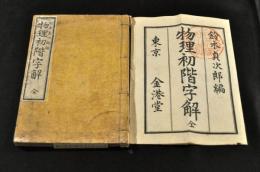 物理初階字解 全
鈴木貞次郎編
物理初階字解 全
東京 金港堂